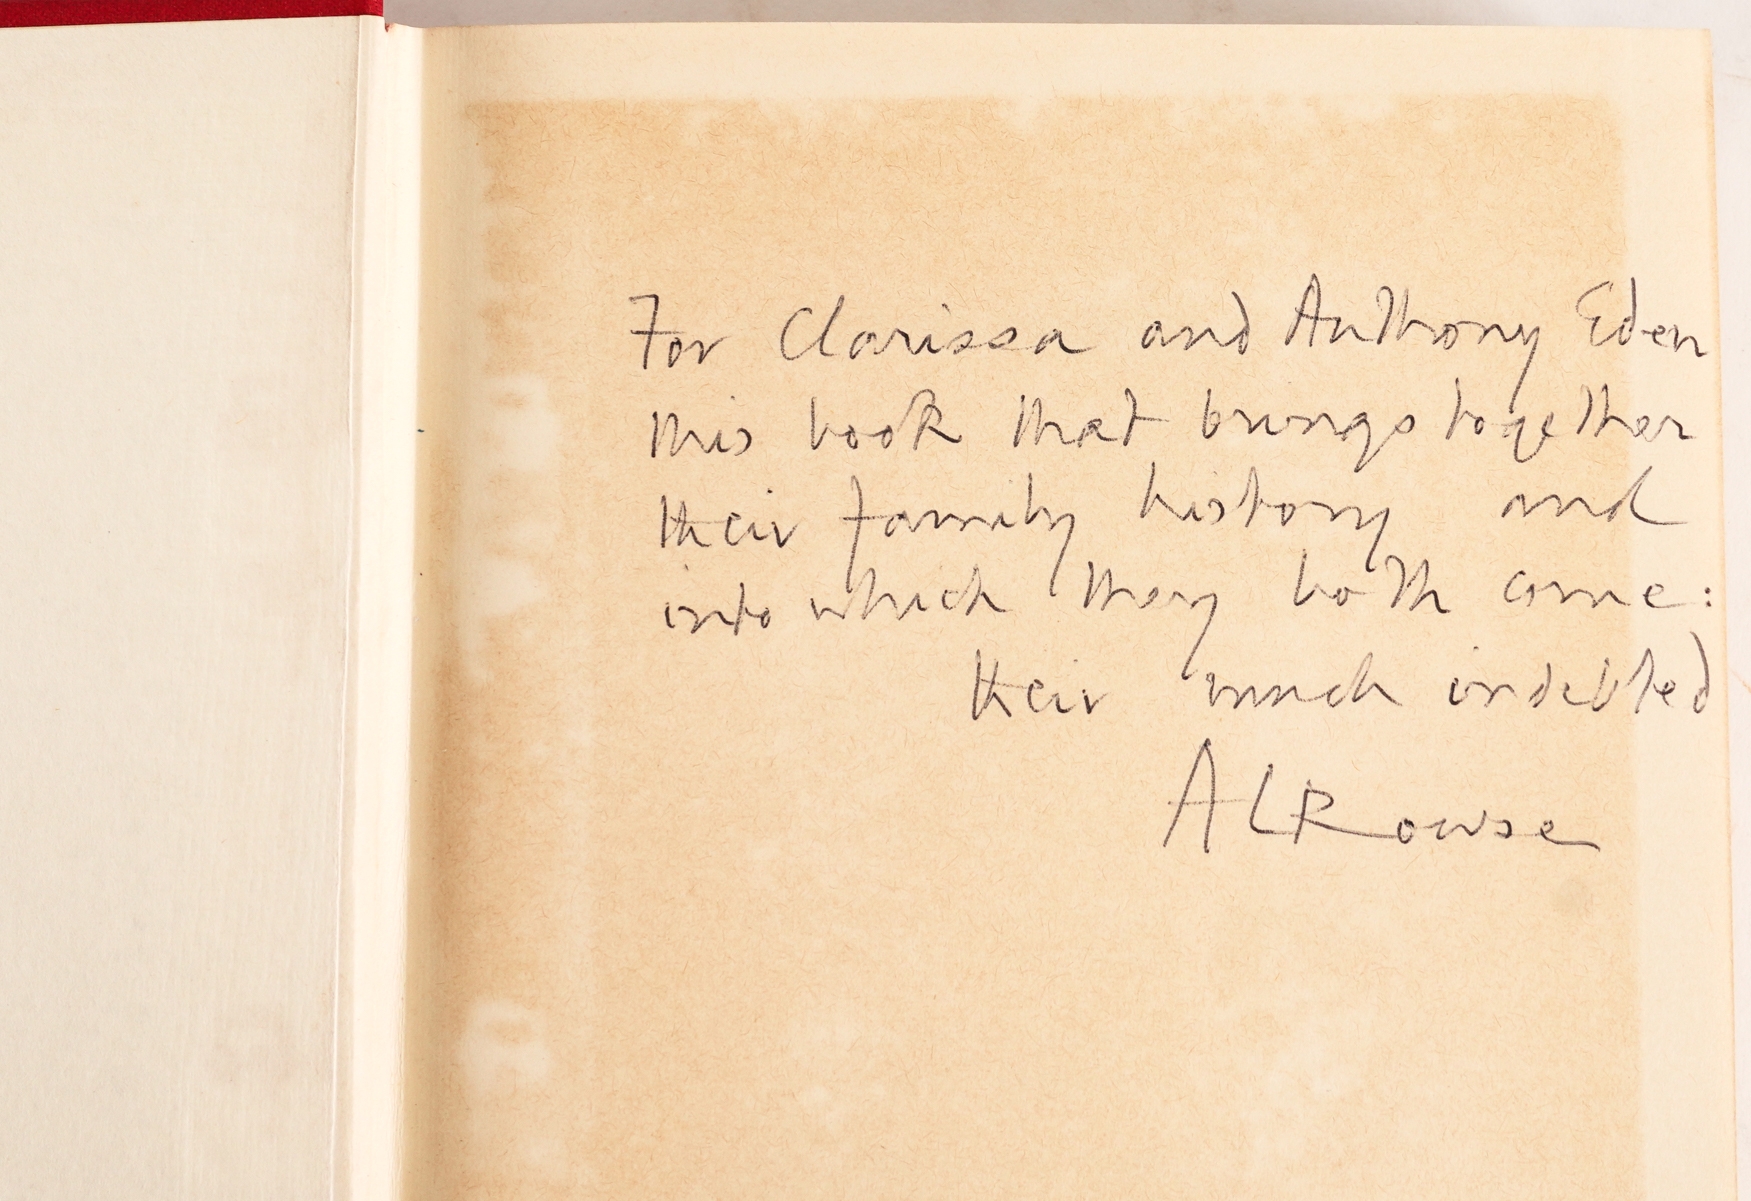 For Clarissa and Anthony Eden
this book that brings together
their family history and
into which they both come:
their much indebted
A L Rowse